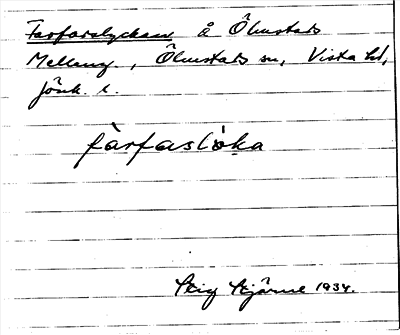 Farfarslyckan å Ölmstads
Mellang., Ölmstads sn, Vista hd,
Jönk. l.
fàrfaslɔ́ka
Stig Stjärne 1934.